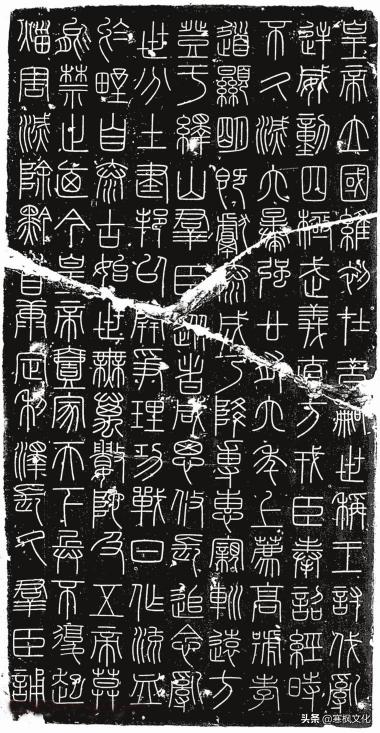 皇帝立國維初在昔嗣世稱王討伐亂
逆威動四極武義直方戎臣奉詔經時
不久滅六暴強廿有六年上薦高號孝
道顯明既獻泰成乃降專惠親巡遠方
登于繹山羣臣從者咸思攸長追念亂
世分土建邦以開爭理功戰日作流血
於野自泰古始世無萬數陀及五帝莫
能禁止迺今皇帝壹家天下兵不復起
災害滅除黔首康定利澤長久羣臣誦
头条 @寒枫文化